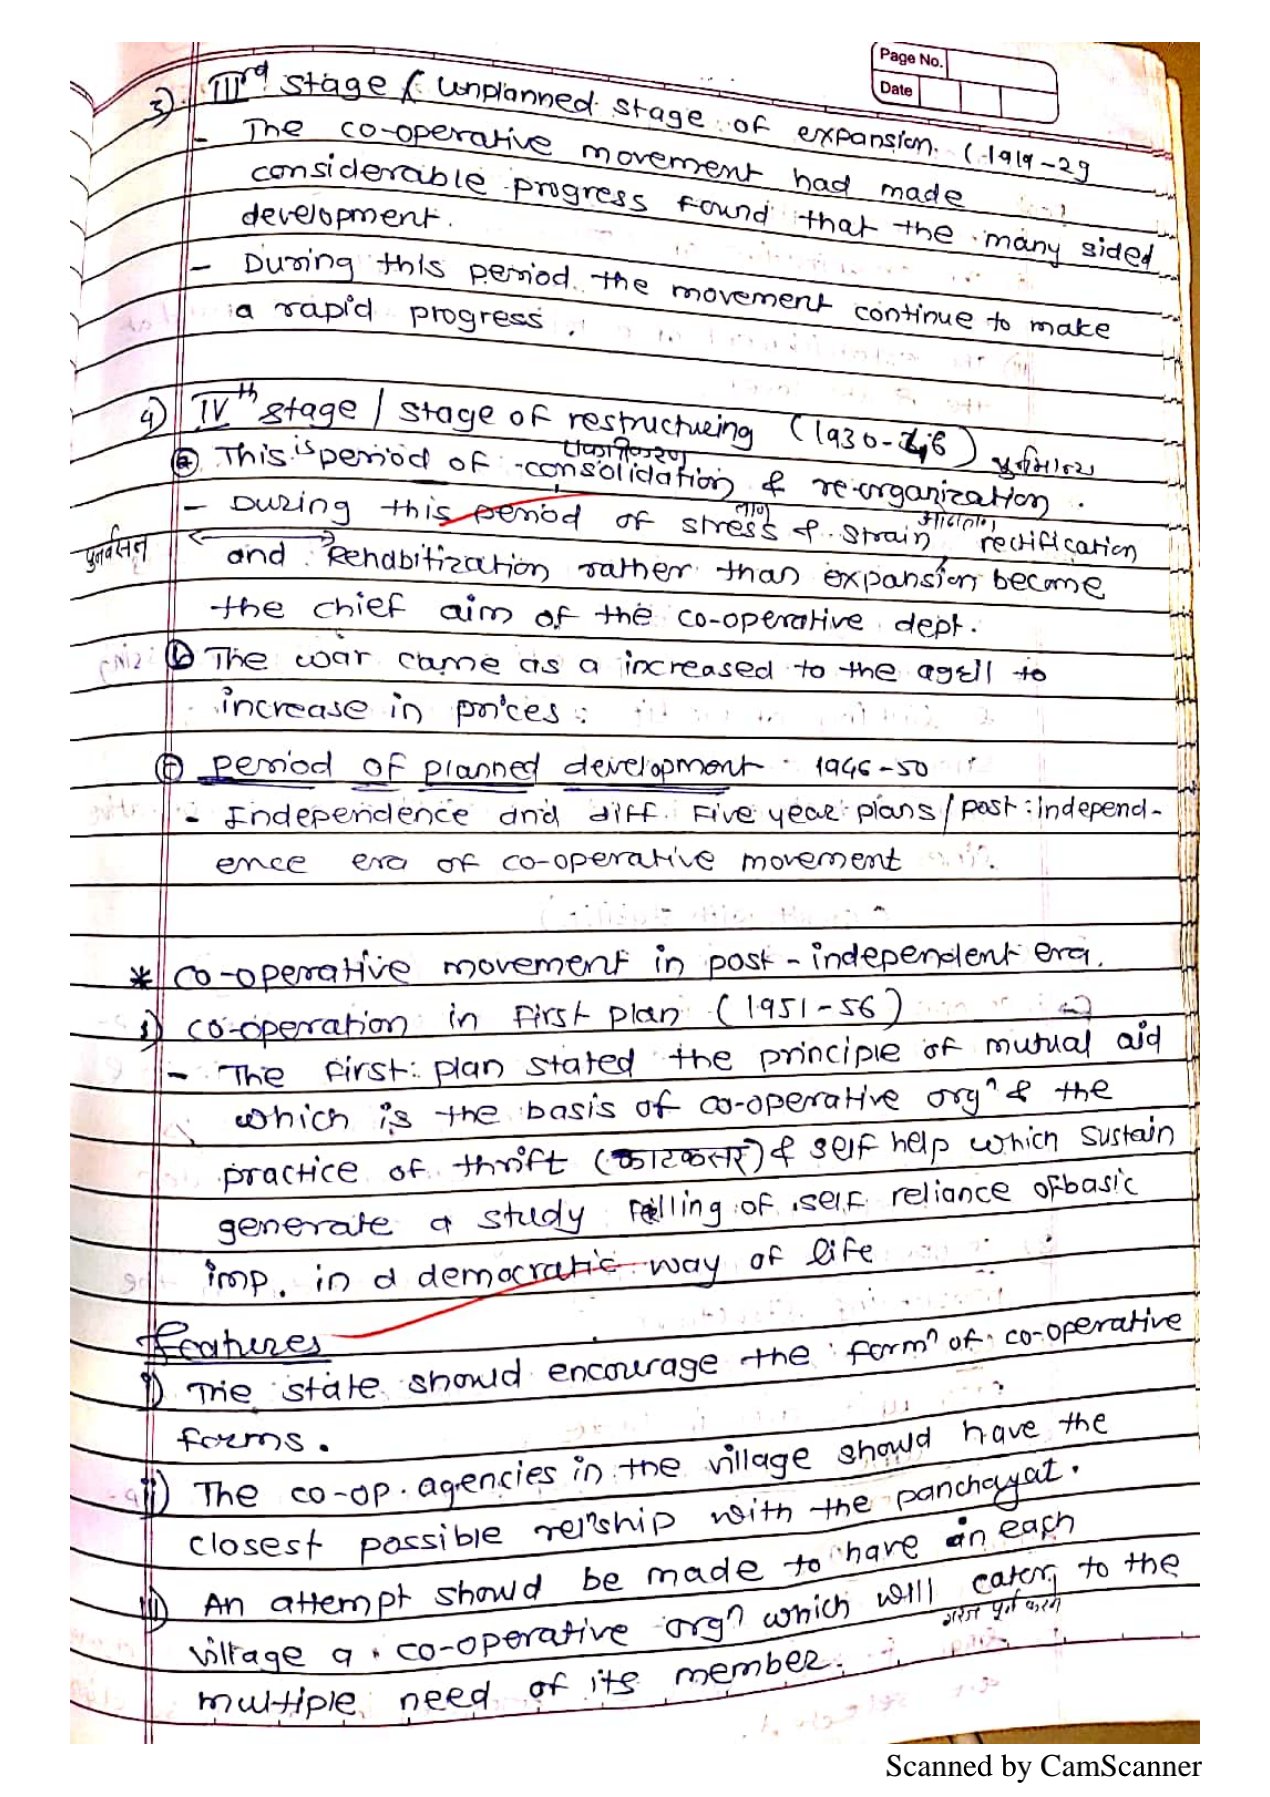 Page No.
Date
3) IIIrd stage / unplanned stage of expansion. (1919-29
- The co-operative movement had made
considerable progress found that the many sided
development.
- During this period the movement continue to make
a rapid progress.
4) IVth stage / stage of restructuring (1930-46)
एकत्रीकरण
(a) This is period of consolidation & re-organization.
- During this period of stress & strain, rectification
ताण
पुनर्वसन
and Rehabitization rather than expansion become
the chief aim of the co-operative dept.
(b) The war came as a increased to the agrll to
increase in prices.
(c) period of planned development 1946-50
- Independence and diff. Five year plans / past independ-
ence era of co-operative movement
* co-operative movement in post-independent era.
1) co-operation in first plan (1951-56)
- The first plan stated the principle of mutual aid
which is the basis of co-operative orgn & the
practice of thrift (काटकसर) & self help which sustain
generate a study felling of self reliance of basic
imp. in a democratic way of life
Features
i) The state should encourage the formn of co-operative
forms.
ii) The co-op. agencies in the village should have the
closest possible relnship with the panchayat.
iii) An attempt should be made to have in each
village a co-operative orgn which will cater to the
गरज पूर्ण करणे
multiple need of its member.
Scanned by CamScanner